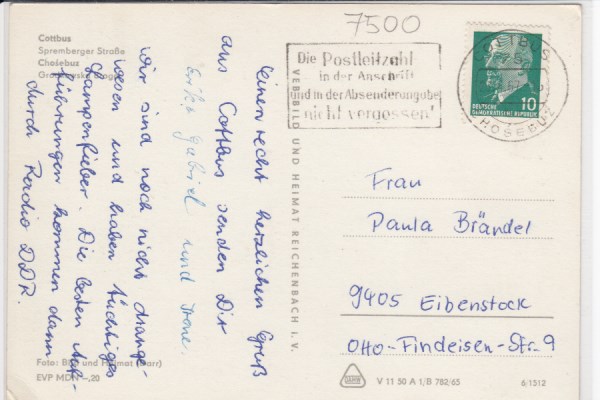 7500
Cottbus
Spremberger Straße
Chośebuz
Die Postleitzahl
in der Anschrift
und in der Absenderangabe
nicht vergessen!
COTTBUS
CHOŚEBUZ
DEUTSCHE
DEMOKRATISCHE REPUBLIK
10
Einen recht herzlichen Gruß
aus Cottbus senden Dir
Erika, Gabriel und Irene.
Wir sind noch nicht drange-
wesen und haben tüchtiges
Lampenfieber. Die besten Auf-
führungen kommen dann
durch Radio DDR.
VEB BILD UND HEIMAT REICHENBACH I. V.
Frau
Paula Brändel
9405 Eibenstock
Otto-Findeisen-Str. 9
Foto: Bild und Heimat
EVP MDN -,20
V 11 50 A 1/B 782/65
6/1512